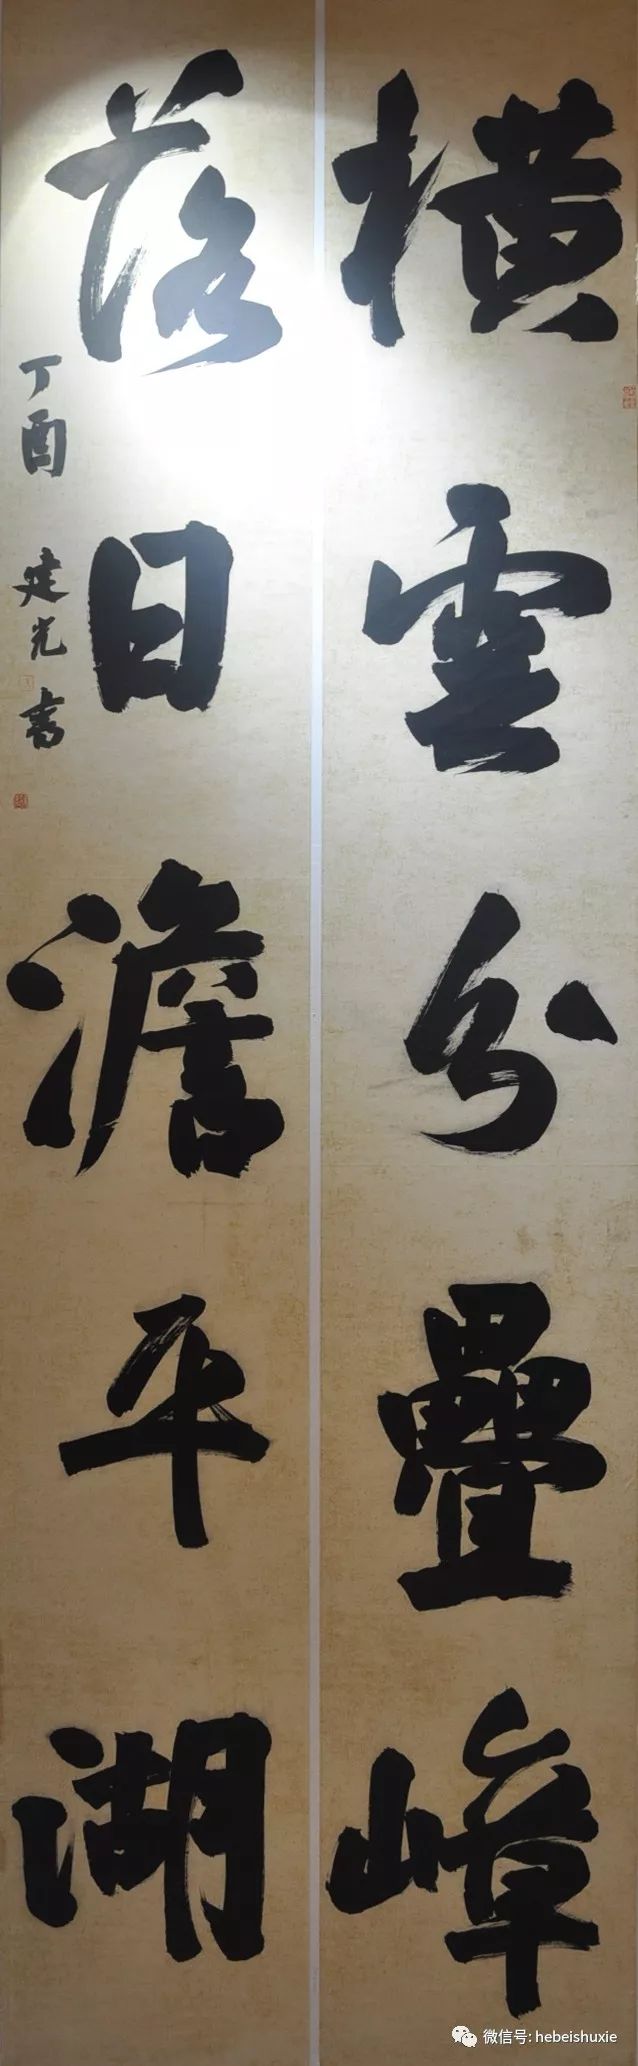 橫雲分疊嶂
落日澹平湖
丁酉 建光書
微信号: hebeishuxie